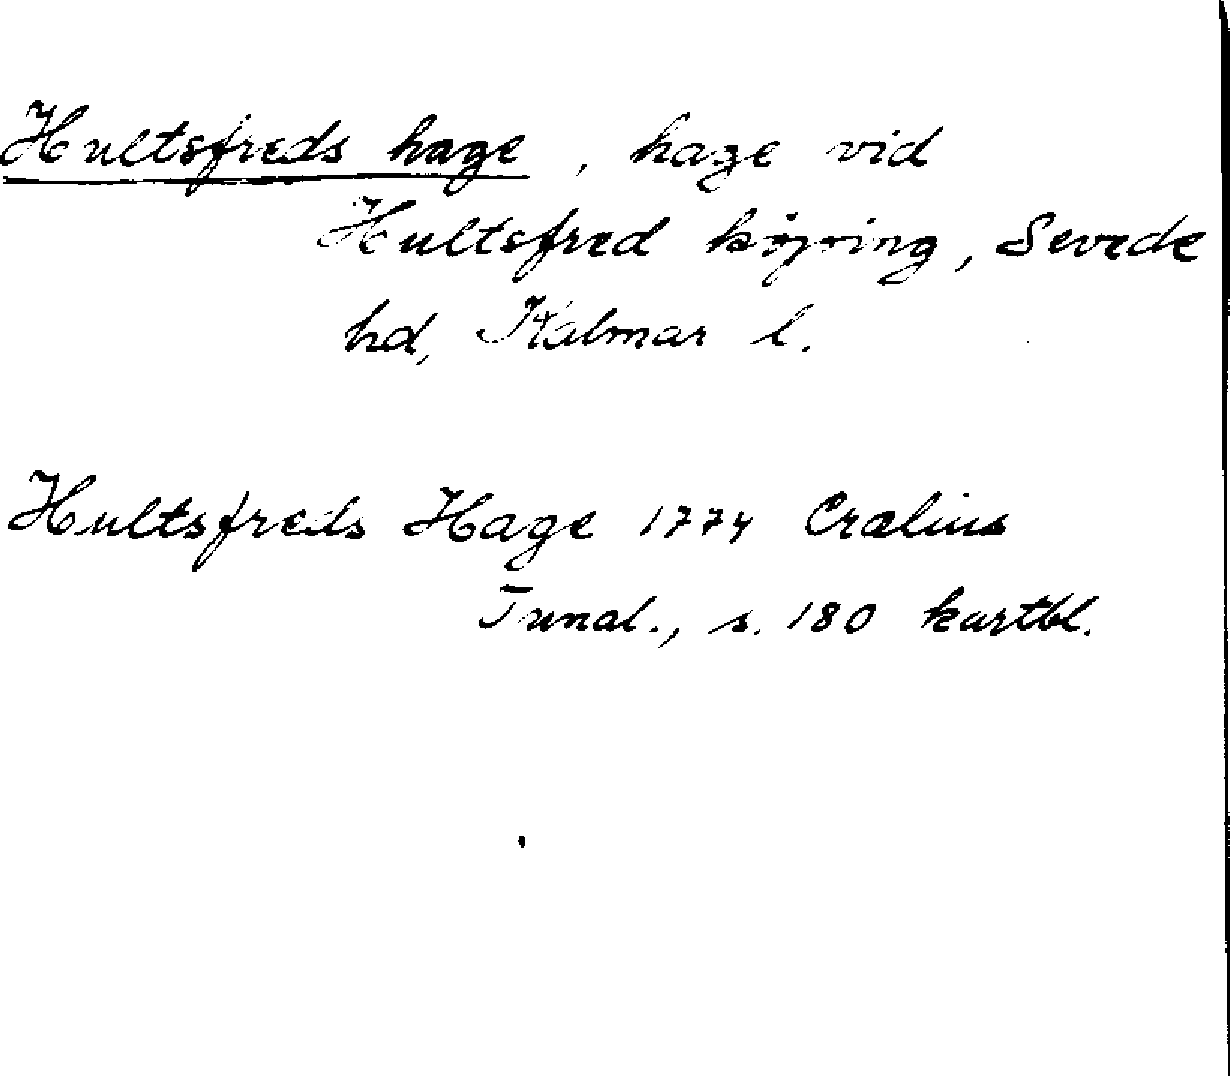 Hultsfreds hage, hage vid
Hultsfred köping, Sevede
hd, Kalmar l.
Hultsfreds Hage 1774 Crælius
Tunal., s. 180 kartbl.